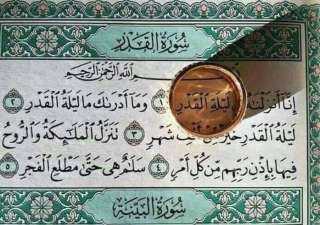 سُورَةُ الْقَدْرِ
بِسْمِ اللَّهِ الرَّحْمَٰنِ الرَّحِيمِ
إِنَّا أَنزَلْنَٰهُ لَيْلَةِ الْقَدْرِ ١ وَمَا أَدْرَىٰكَ مَا لَيْلَةُ الْقَدْرِ ٢
لَيْلَةُ الْقَدْرِ خَيْرٌ شَهْرٍ ٣ تَنَزَّلُ الْمَلَٰٓئِكَةُ وَالرُّوحُ
فِيهَا بِإِذْنِ رَبِّهِم مِّن كُلِّ أَمْرٍ ٤ سَلَٰمٌ هِيَ حَتَّىٰ مَطْلَعِ الْفَجْرِ ٥
سُورَةُ الْبَيِّنَةِ